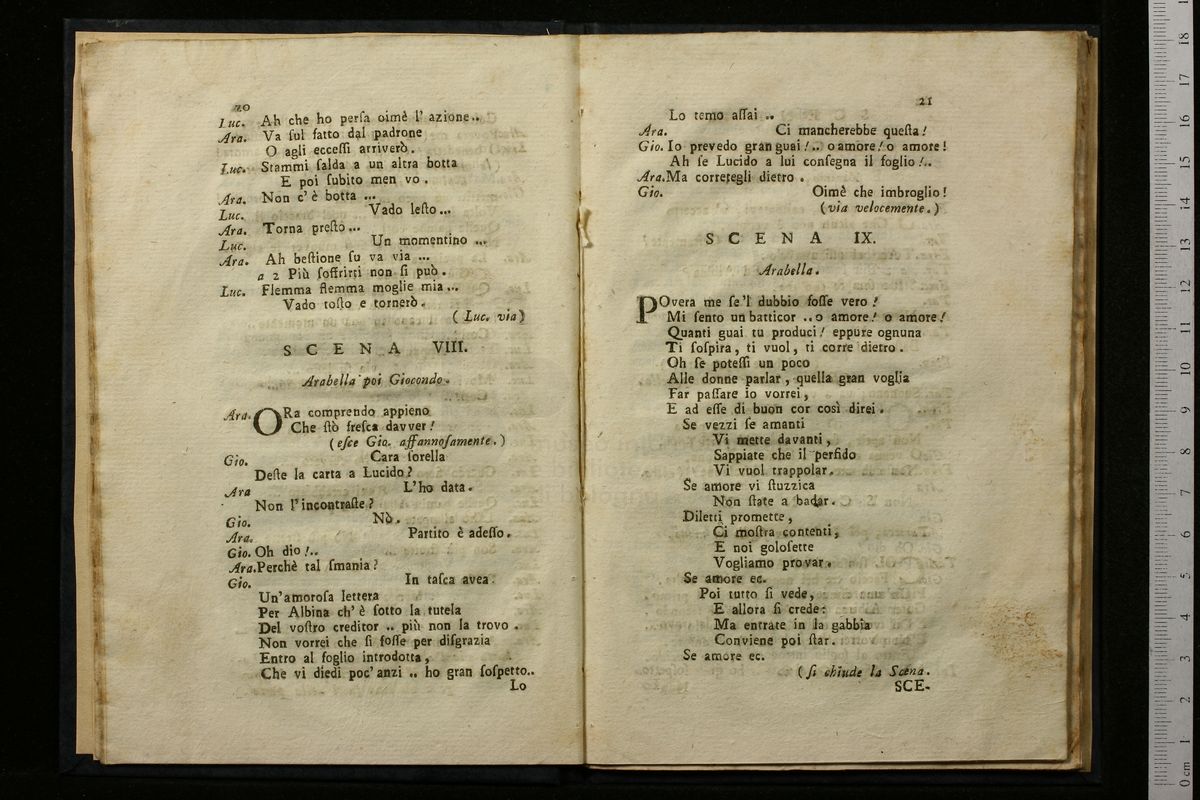 20
Luc. Ah che ho perſa oimè l' azione..
Ara. Va ſul fatto dal padrone
O agli ecceſſi arriverò.
Luc. Stammi ſalda a un altra botta
E poi ſubito men vo.
Ara. Non c' è botta ...
Luc. Vado leſto...
Ara. Torna preſto...
Luc. Un momentino ...
Ara. Ah beſtione ſu va via ...
a 2 Più ſoffrirti non ſi può.
Luc. Flemma flemma moglie mia...
Vado toſto e tornerò.
(Luc. via)
SCENA VIII.
Arabella poi Giocondo.
Ara. ORa comprendo appieno
Che ſtò freſca davver!
(eſce Gio. affannoſamente.)
Gio. Cara ſorella
Deſte la carta a Lucido?
Ara L'ho data.
Non l'incontraſte?
Gio. Nò.
Ara. Partito è adeſſo.
Gio. Oh dio!..
Ara. Perchè tal ſmania?
Gio. In taſca avea
Un'amoroſa lettera
Per Albina ch' è ſotto la tutela
Del voſtro creditor .. più non la trovo.
Non vorrei che ſi foſſe per diſgrazia
Entro al foglio introdotta,
Che vi diedi poc' anzi .. ho gran ſoſpetto..
Lo
21
Lo temo aſſai ..
Ara. Ci mancherebbe queſta!
Gio. Io prevedo gran guai!.. o amore! o amore!
Ah ſe Lucido a lui conſegna il foglio!..
Ara. Ma corretegli dietro.
Gio. Oimè che imbroglio!
(via velocemente.)
SCENA IX.
Arabella.
POvera me ſe'l dubbio foſſe vero!
Mi ſento un batticor ..o amore! o amore!
Quanti guai tu produci! eppure ognuna
Ti ſoſpira, ti vuol, ti corre dietro.
Oh ſe poteſſi un poco
Alle donne parlar, quella gran voglia
Far paſſare io vorrei,
E ad eſſe di buon cor così direi.
Se vezzi ſe amanti
Vi mette davanti,
Sappiate che il perfido
Vi vuol trappolar.
Se amore vi ſtuzzica
Non ſtate a badar.
Diletti promette,
Ci moſtra contenti,
E noi goloſette
Vogliamo provar.
Se amore ec.
Poi tutto ſi vede,
E allora ſi crede:
Ma entrate in la gabbia
Conviene poi ſtar.
Se amore ec.
(ſi chiude la Scena.
SCE-
0 cm 1 2 3 4 5 6 7 8 9 10 11 12 13 14 15 16 17 18